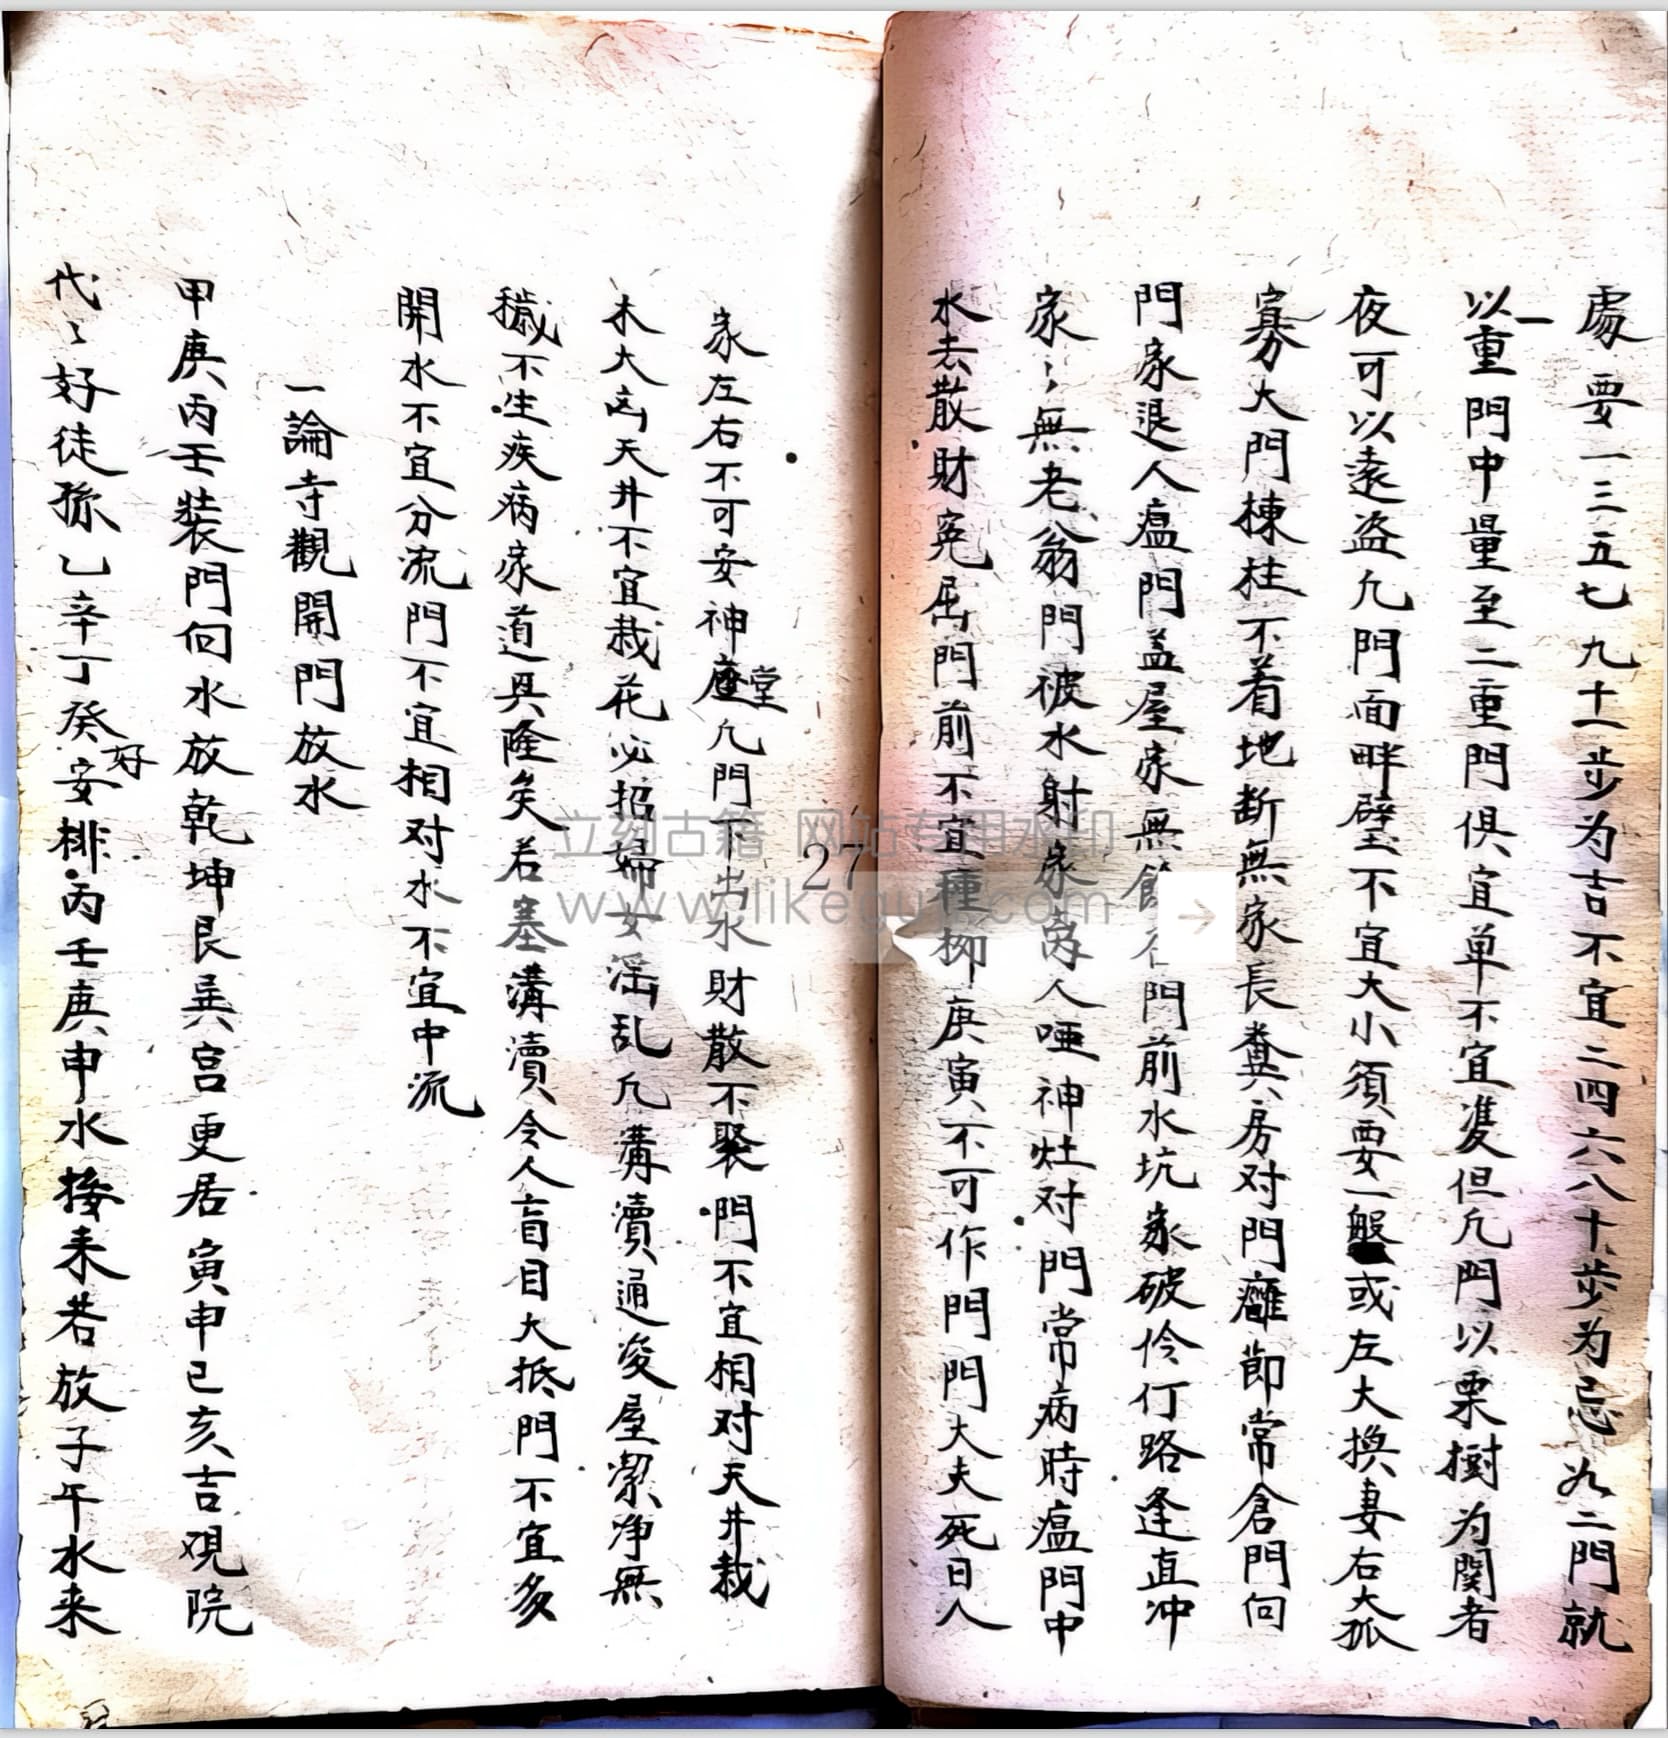 處要一三五七九十一步为吉不宜二四六八十步为忌凣二門就
以一重門中量至二重門俱宜单不宜雙但凣門以栗樹为関者
夜可以遠盗凣門面畔壁不宜大小須要一般或左大換妻右大孤
寡大門棟柱不着地断無家長糞房对門癰節常倉門向
門家退人瘟門盖屋家無餘石門前水坑家破伶仃路逢直冲
家〻無老翁門被水射家离人哑神灶对門常病時瘟門中
水去散財寃屈門前不宜種柳庚寅不可作門門大夫死日人
家左右不可安神堂凣門下出水財散不聚門不宜相对天井栽
木大凶天井不宜栽花必招婦女滛乱凣溝瀆通浚屋潔净無
穢不生疾病家道具隆矣若塞溝瀆令人盲目大抵門不宜多
開水不宜分流門不宜相对水不宜中流
一論寺觀開門放水
甲庚丙壬装門向水放乾坤艮巽宫更居寅申已亥吉观院
代〻好徒孫乙辛丁癸好安排丙壬庚申水接来若放子午水来
27
立刻古籍 网站专用水印
www.likeguji.com